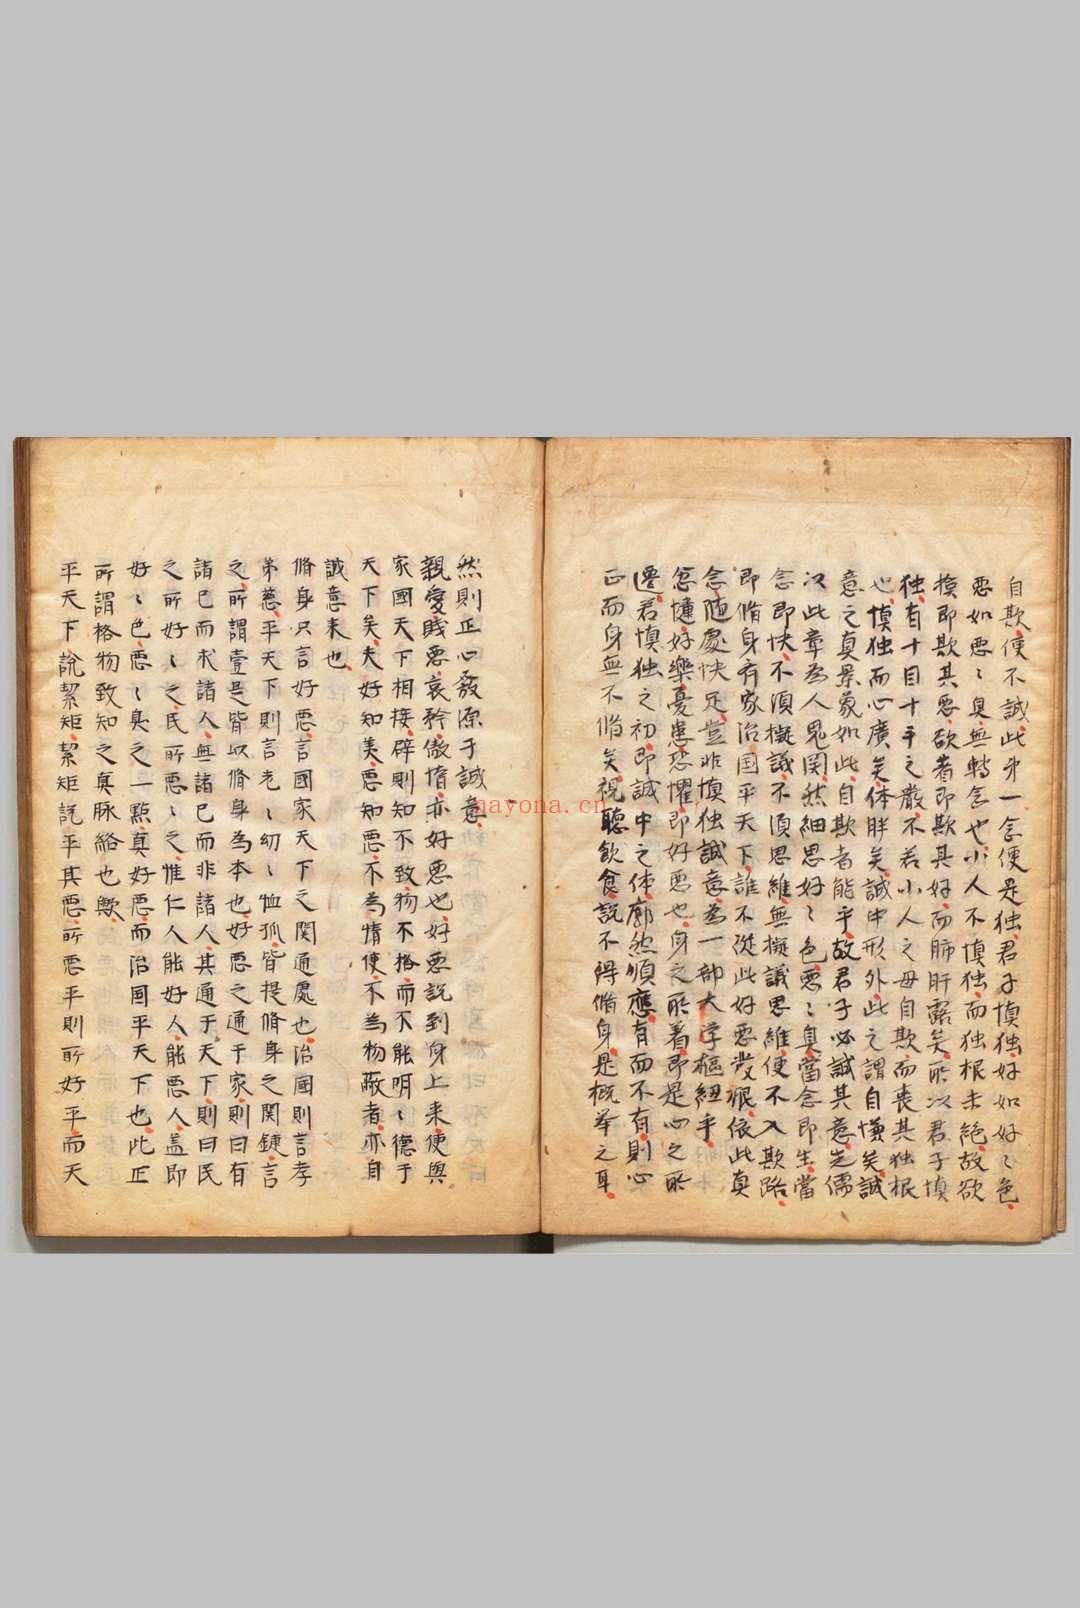 自欺便不誠此第一念便是独君子慎独好如好〻色
惡如惡〻臭無轉念也小人不慎独而独根未絶故欲
揜即欺其惡欲著即欺其好而肺肝露矣所以君子慎
独有十目十手之嚴不若小人之毋自欺而喪其独根
也慎独而心廣矣体胖矣誠中形外此之謂自慊矣誠
意之真景象如此自欺者能乎故君子必誠其意先儒
次此章為人鬼関然細思好〻色惡〻臭當念即生當
念即快不須擬議不須思維無擬議思維便不入欺路
即脩身有家治国平天下誰不從此好惡發根依此真
念随處快足豈非慎独誠意為一部大学樞紐乎
忿懥好樂憂患恐懼即好惡也身之所着即是心之所
遷君慎独之初即誠中之体廓然順應有而不有則心
正而身無不脩矣視聽飲食説不得脩身是概举之耳
然則正心發源于誠意
親愛賤惡哀矜傲惰亦好惡也好惡説到身上来便與
家國天下相接辟則知不致物不格而不能明〻德于
天下矣夫好知美惡知惡不為情使不為物蔽者亦自
誠意来也
脩身只言好惡言國家天下之関通處也治國則言孝
弟慈平天下則言老〻幼〻恤孤皆提脩身之関鍵言
之所謂壹是皆以脩身為本也好惡之通于家則曰有
諸已而求諸人無諸已而非諸人其通于天下則曰民
之所好〻之民所惡〻之惟仁人能好人能惡人盖即
好〻色惡〻臭之一點真好惡而治國平天下也此正
所謂格物致知之真脉絡也歟
平天下說絜矩絜矩説平其惡所惡平則所好平而天
nayona.cn